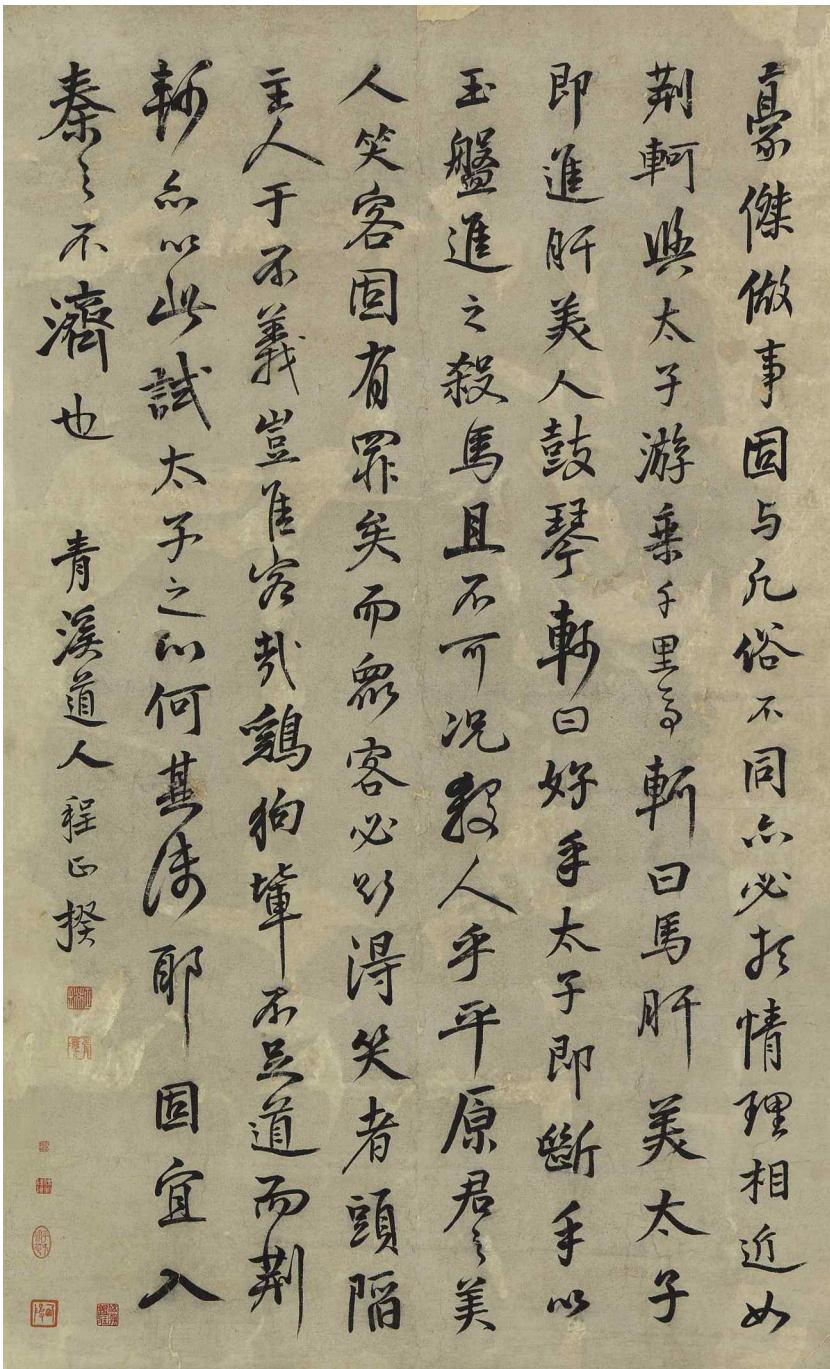 豪傑做事固与凡俗不同亦必於情理相近如
荆軻與太子游乗千里馬軻曰馬肝美太子
即進肝美人鼓琴軻曰好手太子即斷手以
玉盤進之殺馬且不可况殺人乎平原君之美
人笑客固有罪矣而衆客必欲得笑者頭陷
主人于不義豈隹客哉鷄狗軰不足道而荆
軻亦以此試太子之心何其淺耶固宜入
秦之不濟也
青溪道人程正揆